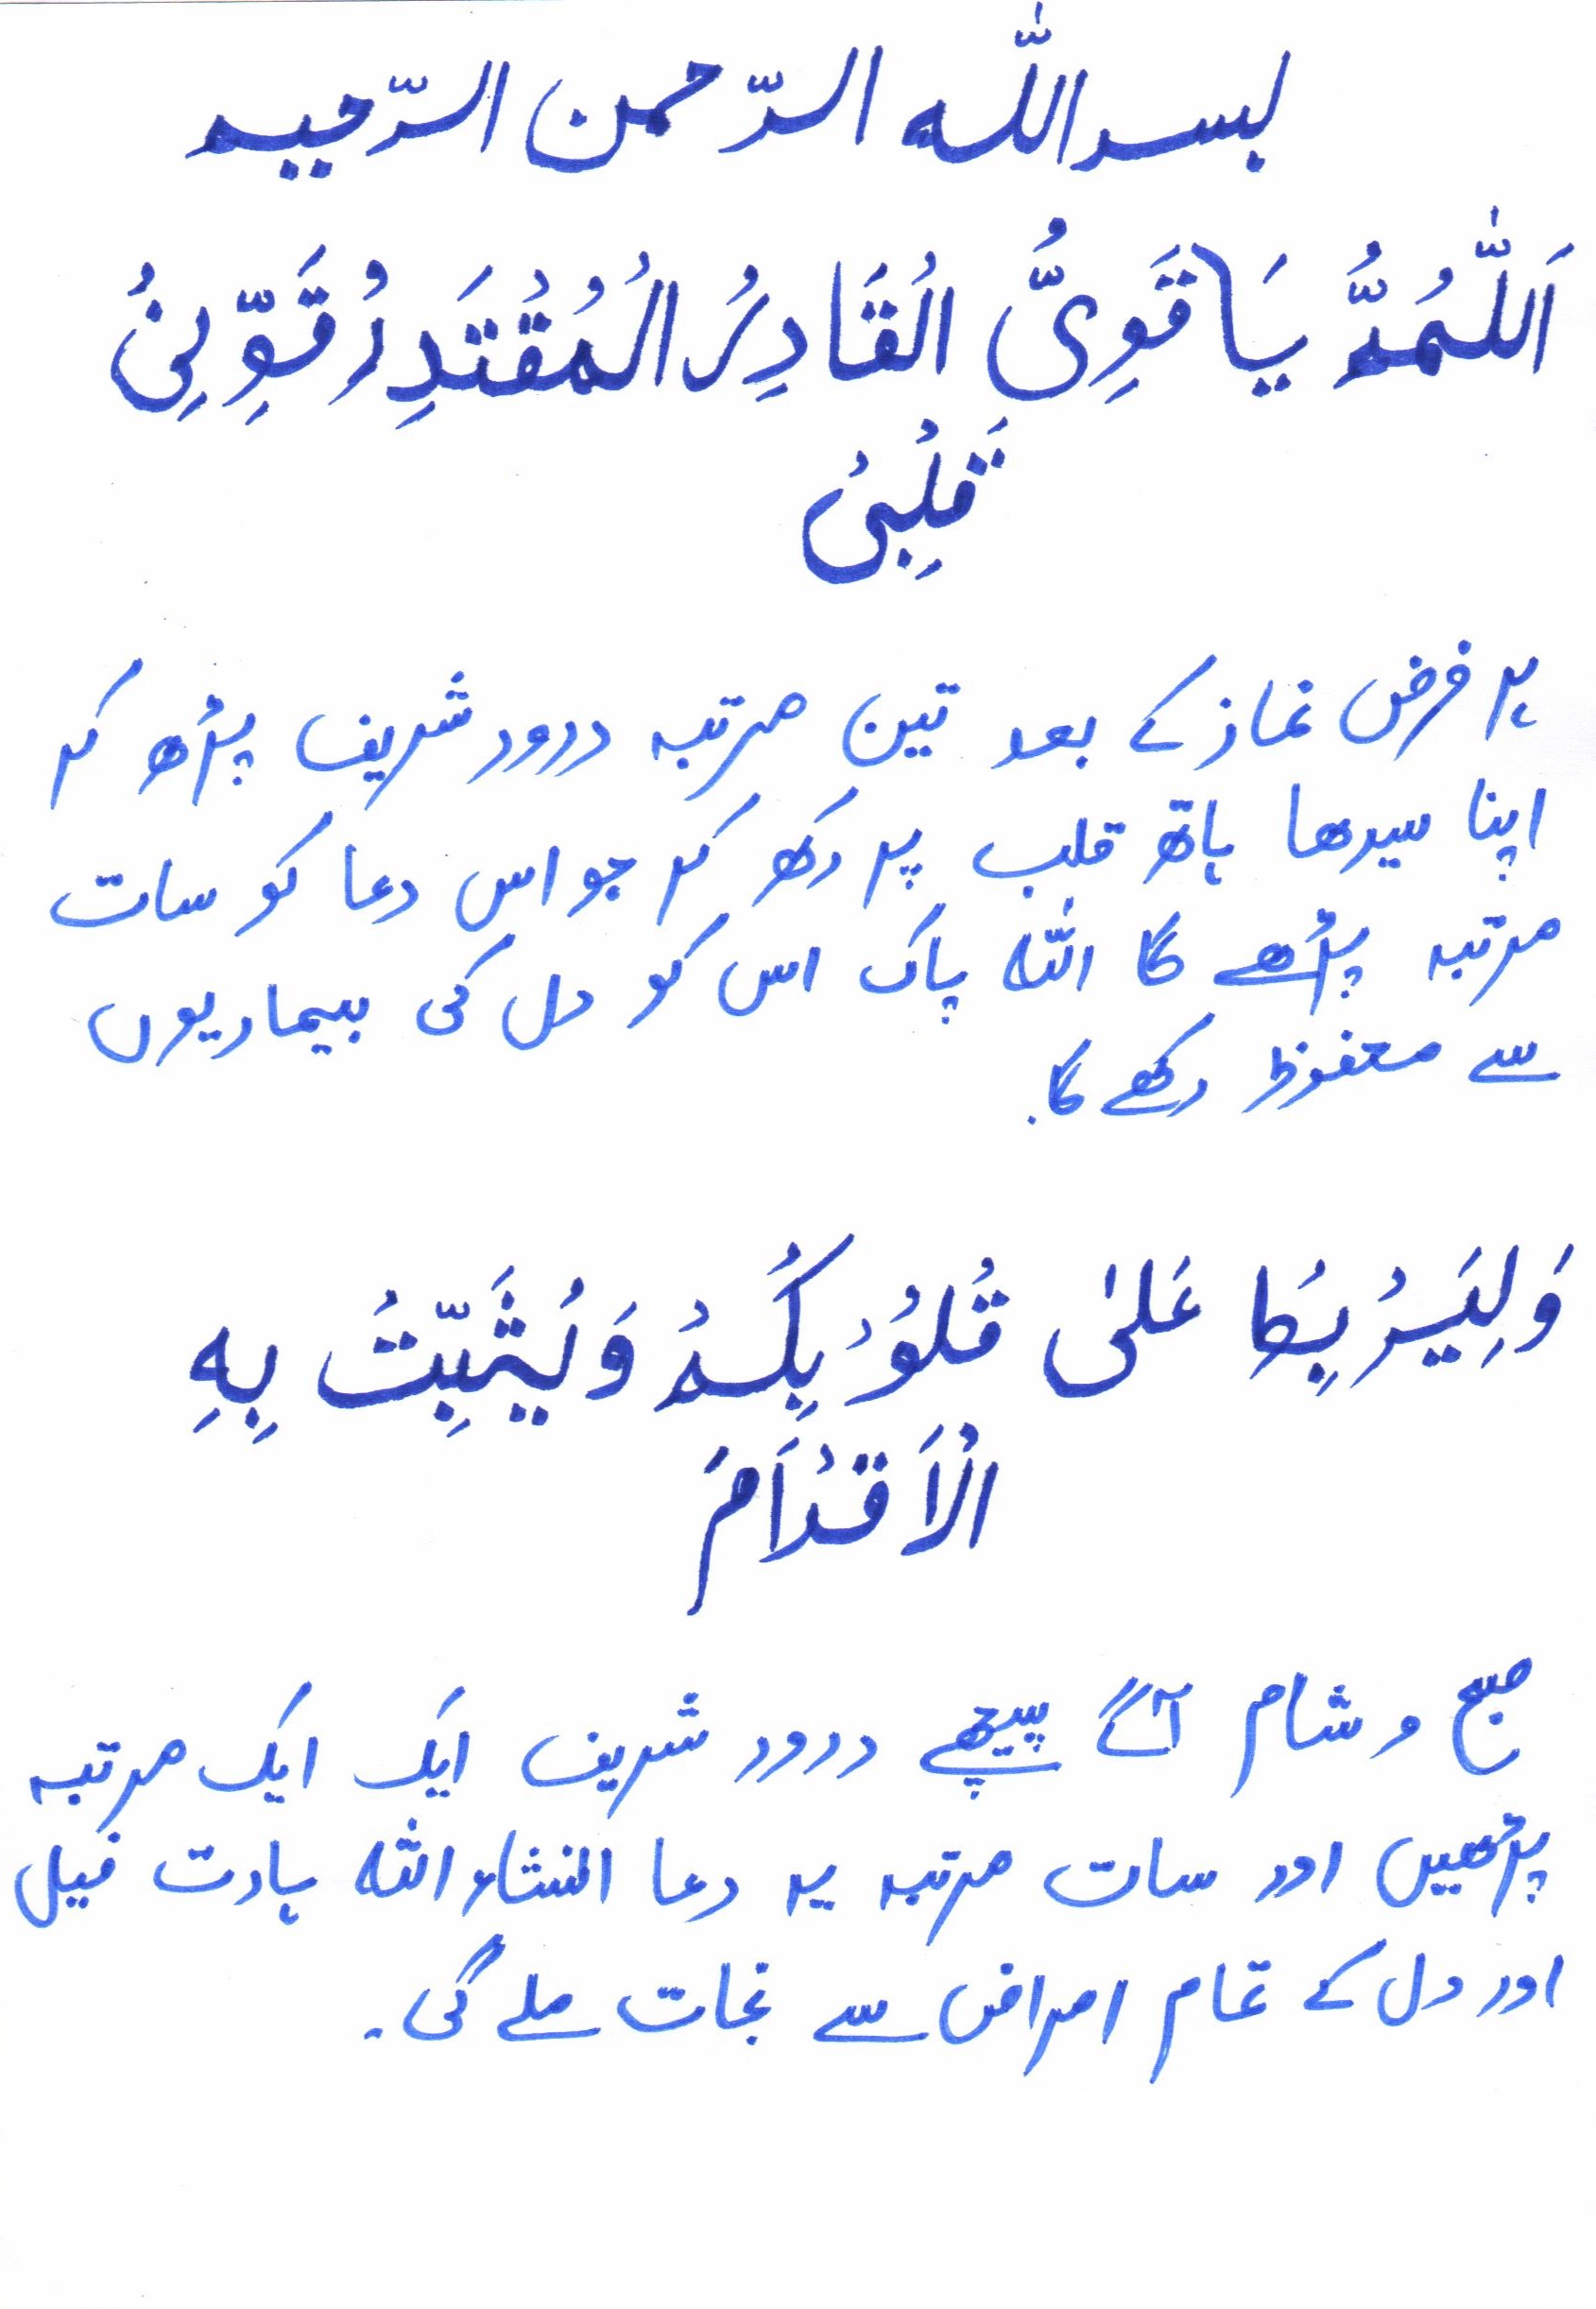 بسم اللّٰه الرّحمن الرّحیم
اَللّٰهُمَّ یَا قَوِیُّ الْقَادِرُ الْمُقْتَدِرُ قَوِّنِیْ
قَلْبِیْ
ہر فرض نماز کے بعد تین مرتبہ درود شریف پڑھ کر
اپنا سیدھا ہاتھ قلب پر رکھ کر جو اس دعا کو سات
مرتبہ پڑھے گا اللّٰہ پاک اس کو دل کی بیماریوں
سے محفوظ رکھے گا.
وَلِیَرْبِطَ عَلیٰ قُلُوْبِکُمْ وَیُثَبِّتَ بِهِ
الْاَقْدَامَ
صبح و شام آگے پیچھے درود شریف ایک ایک مرتبہ
پڑھیں اور سات مرتبہ یہ دعا انشاء اللّٰہ ہارٹ فیل
اور دل کے تمام امراض سے نجات ملے گی۔